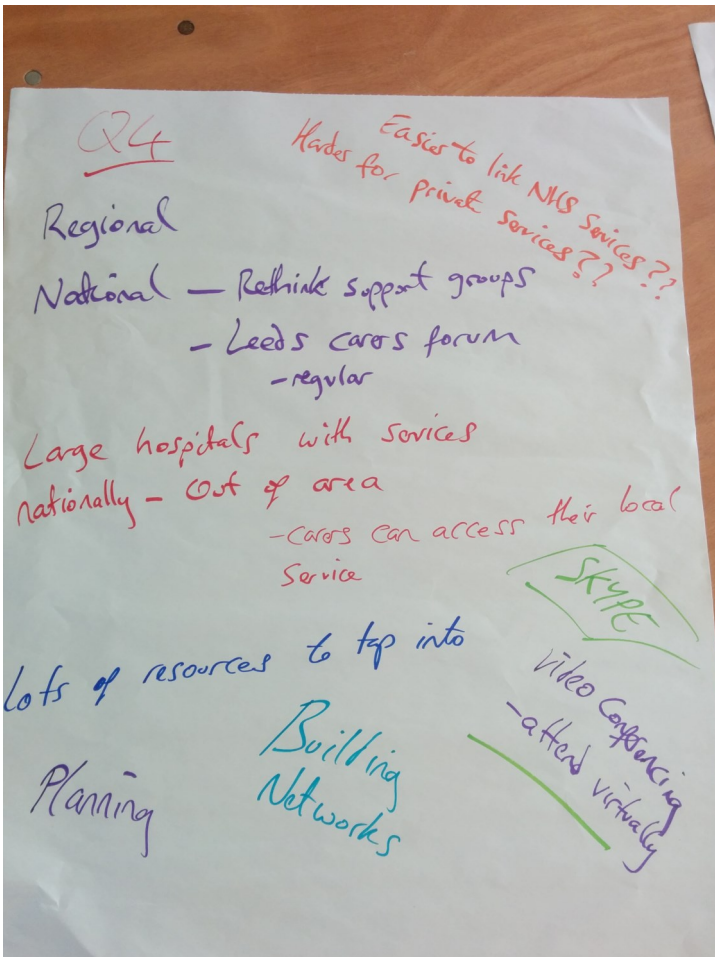 Q4
Easier to link NHS Services??
Harder for private services??
Regional
National – Rethink support groups
– Leeds carers forum
– regular
Large hospitals with services
nationally – Out of area
– carers can access their local
Service
SKYPE
video Conferencing
– attend virtually
Lots of resources to tap into
Building
Networks
Planning